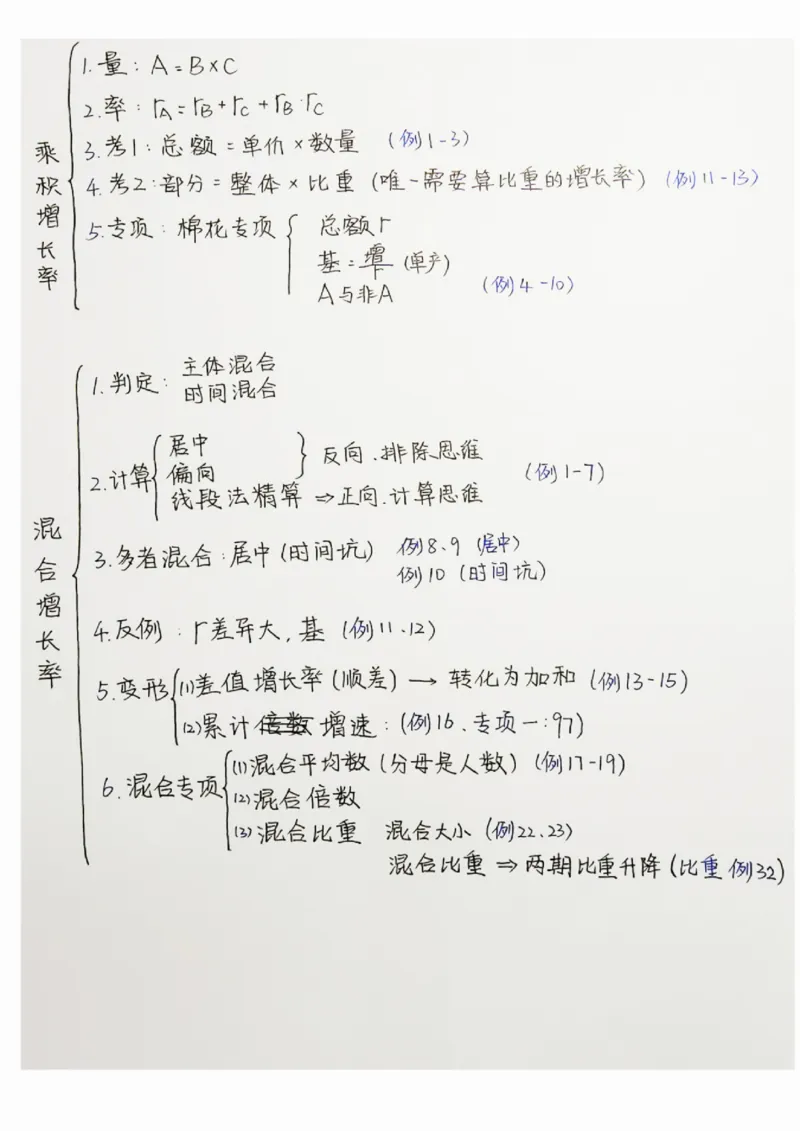 乘积增长率
1.量：A=B×C
2.率：rA=rB+rC+rB·rC
3.考1：总额=单价×数量 (例1-3)
4.考2：部分=整体×比重 (唯一需要算比重的增长率) (例11-13)
5.专项：棉花专项
总额r
基=增/r (单产)
A与非A (例4-10)
混合增长率
1.判定：主体混合
时间混合
2.计算
居中
偏向
反向.排除思维
线段法精算⇒正向.计算思维 (例1-7)
3.多者混合：居中(时间坑) 例8、9 (居中)
例10 (时间坑)
4.反例：r差异大，基 (例11、12)
5.变形 (1)差值增长率(顺差)→转化为加和 (例13-15)
(2)累计增速：(例16、专项一：97)
6.混合专项
(1)混合平均数(分母是人数) (例17-19)
(2)混合倍数
(3)混合比重 混合大小 (例22、23)
混合比重⇒两期比重升降(比重 例32)